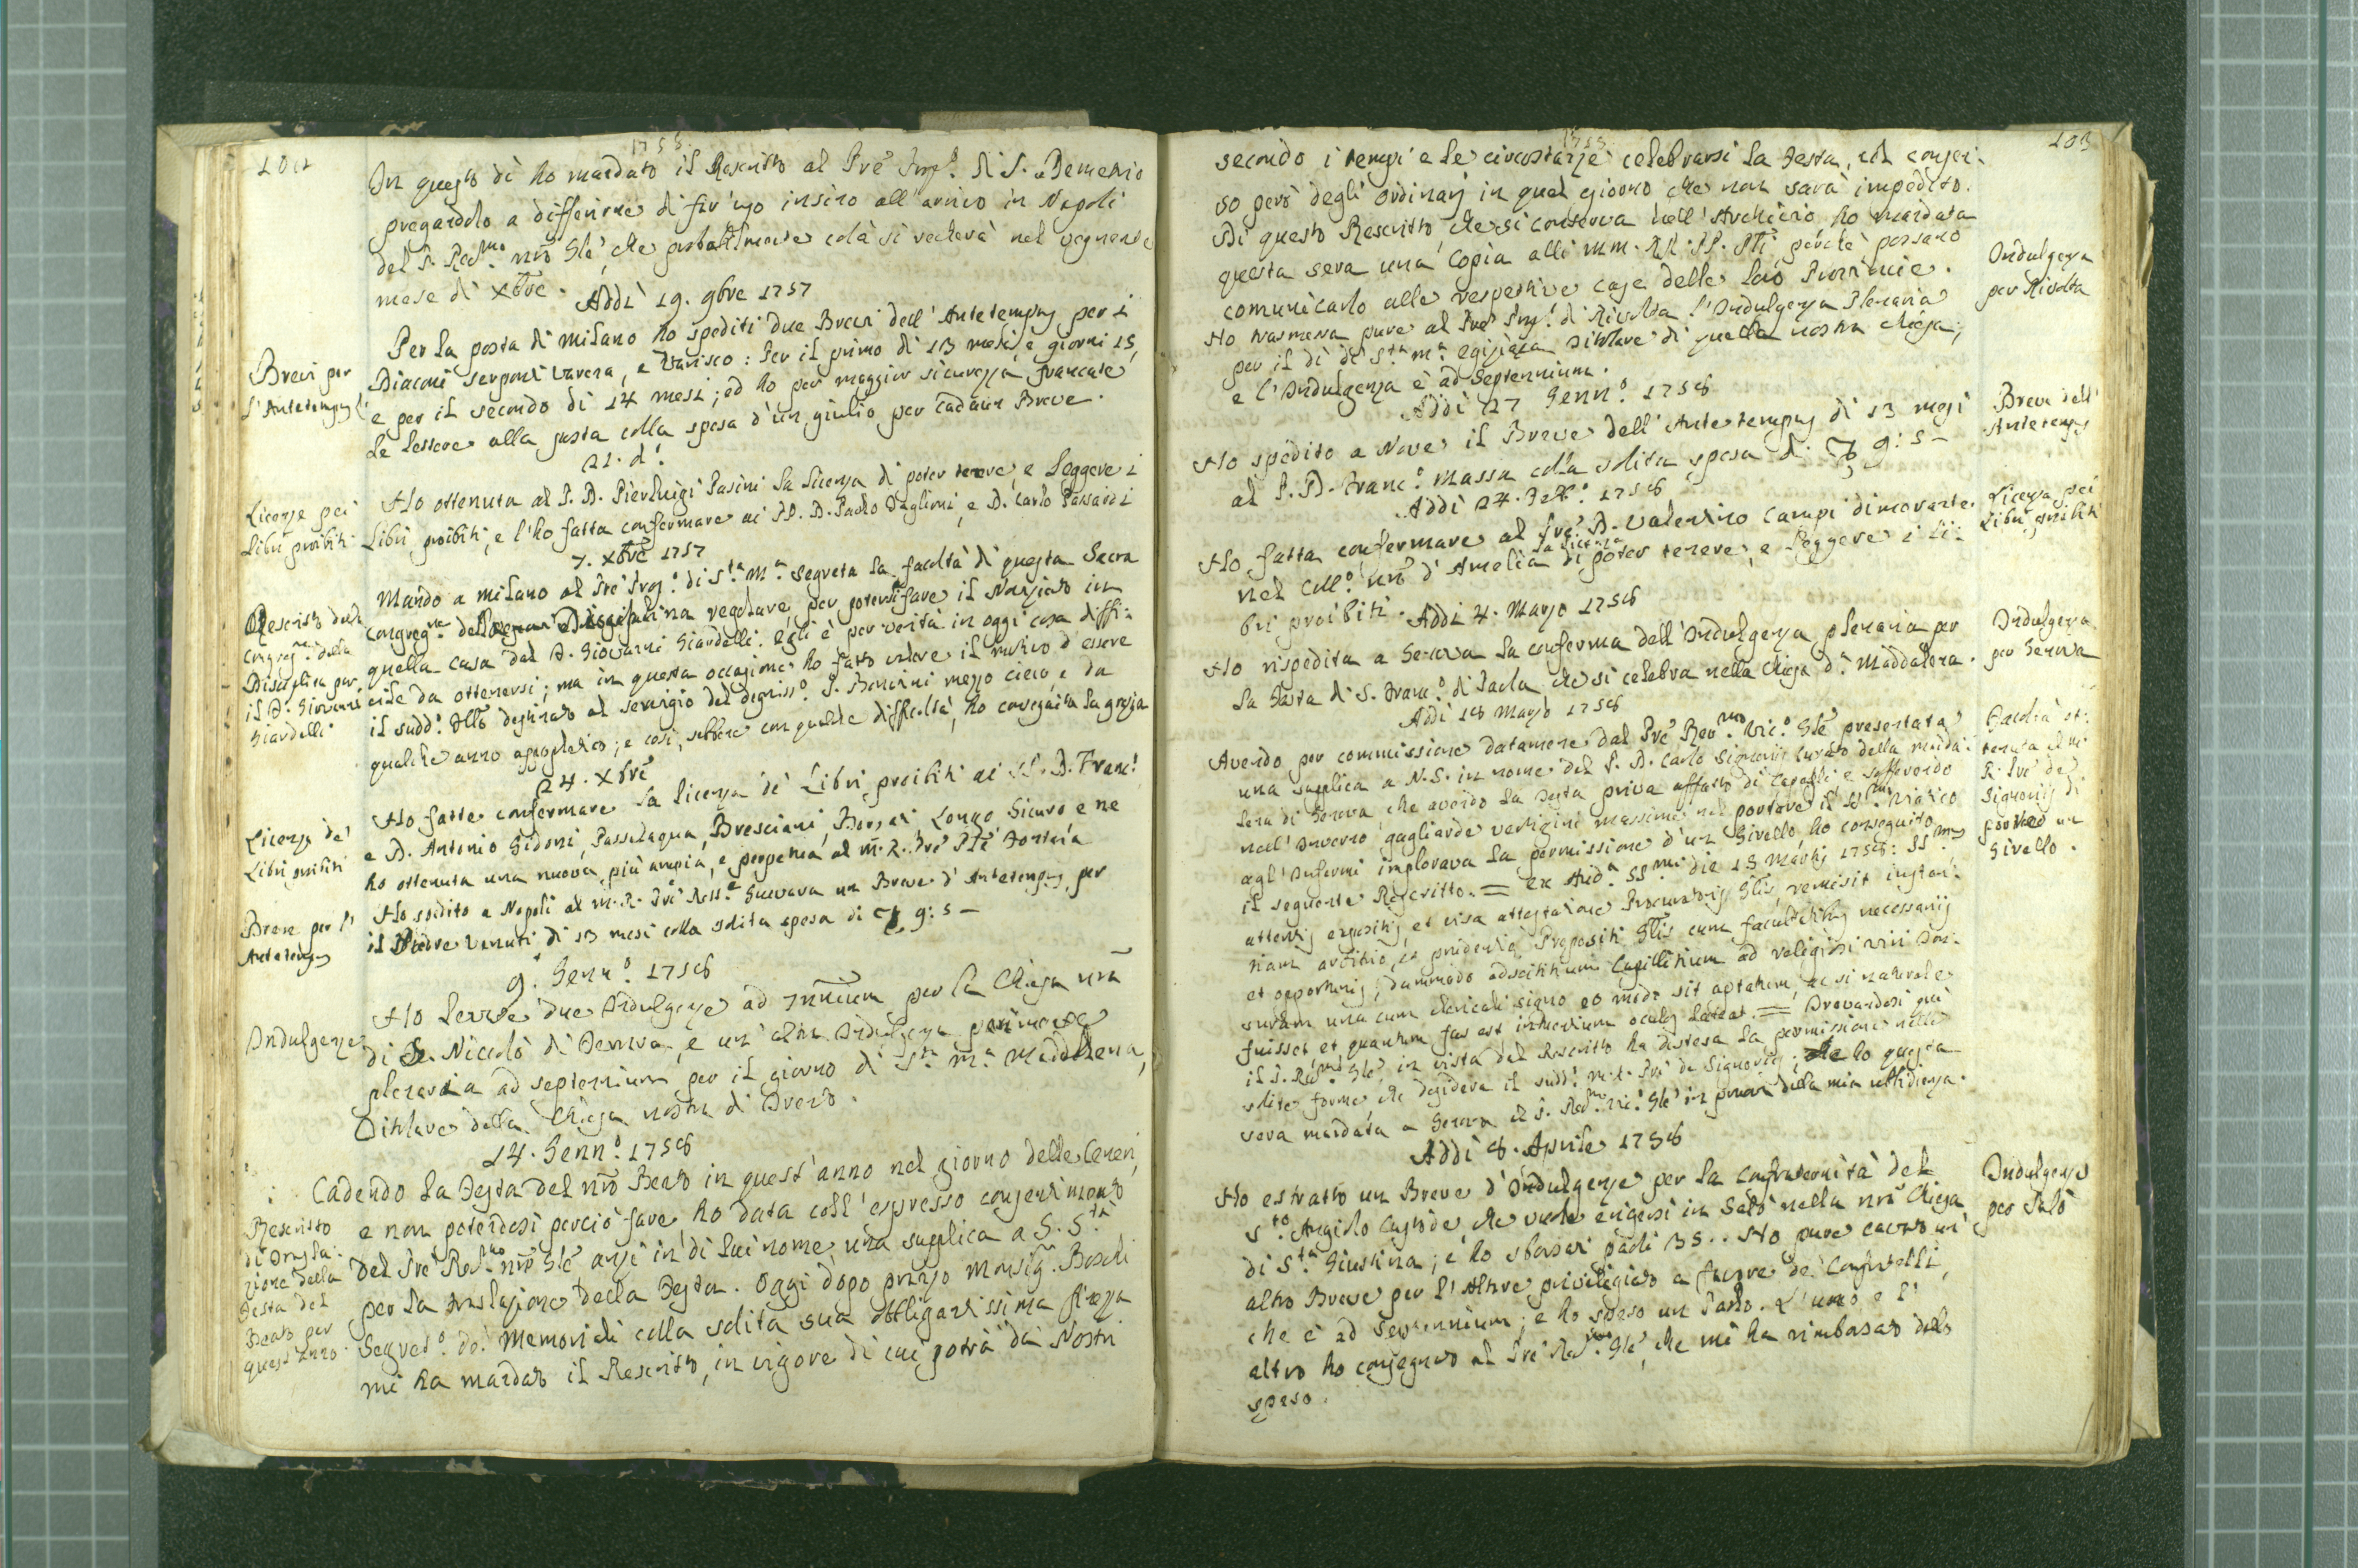 102
1758
In questo dì ho mandato il Rescritto al Prē Prep.º di S. Demetrio
pregandolo a differirne di far uso insino all'arrivo in Napoli
del P. Rev.mo nrō Glē, che probabilmente colà si vedrà nel vegnente
mese di Xbrē.
Addì 19. 9bre 1757
Brevi per
l'Antetempus
Per la posta di Milano ho spediti due Brevi dell'Antetempus per i
Diaconi Serponti Varena, e Varisco: Per il primo di 13 mesi, e giorni 15,
e per il secondo di 14 mesi; ed ho per maggior sicurezza francate
le lettere alla posta colla spesa d'un giulio per cadaun Breve.
21. dº
Licenze pei
Libri proibiti
Ho ottenuta al P. D. Pierluigi Pasini la licenza di poter tenere, e leggere i
Libri proibiti, e l'ho fatta confermare ai PP. D. Paolo Baglioni, e D. Carlo Passardi
7. Xbrē 1757
Rescritto della
Congreg.ne della
Disciplina per
il D. Giovanni
Giardelli
Mando a Milano al Prē Prep.º di S.ta M.a Segreta la facoltà di questa Sacra
Congreg.ne della Disciplina regolare per potersi fare il Noviziato in
quella casa dal D. Giovanni Giardelli. Egli è per verità in oggi cosa diffi-
cile da ottenersi; ma in questa occasione ho fatto valere il motivo d'essere
il sudd.º destinato al servigio del degniss.º P. mezzo cieco, e da
qualche anno apopletico; e così, sebbene con qualche difficoltà, ho conseguita la grazia
24. Xbrē
Licenza de'
Libri proibiti
Ho fatte confermare la licenza de' Libri proibiti ai PP. D. Franc.º
e D. Antonio Gidoni, Passalaqua, Bresciani, Longo Sicuro e ne
ho ottenuta una nuova più ampia, e perpetua al M. R. Prē
Breve per l'
Antetempus
Ho spedito a Napoli al M. R. Prē Guevara un Breve d'Antetempus per
il Venuti di 13 mesi colla solita spesa di 9: 5 —
9. Genn.º 1758
Indulgenze
Ho levate due Indulgenze ad per la Chiesa nrā
di S. Nicolò di Verona, e un'altra Indulgenza parimente
plenaria ad septennium per il giorno di S.ta M.a Maddalena,
Titolare della Chiesa nostra di Trento.
14. Genn.º 1758
Rescritto
di Trasla-
zione della
Festa del
Beato per
quest'anno.
Cadendo la Festa del nrō Beato in quest'anno nel giorno delle Ceneri,
e non potendosi perciò fare, ho data coll'espresso consentimento
del Prē Rev.mo nrō Glē anzi in di lui nome una supplica a S. S.tà
per la traslazione della Festa. Oggi dopo pranzo Monsig.r Boschi
Segret.º de' Memoriali colla solita sua obbligantissima
mi ha mandato il Rescritto, in vigore di cui potrà da' Nostri
103
1758
secondo i tempi e le circostanze celebrarsi la Festa, col consen-
so però degli Ordinarj in quel giorno che non sarà impedito.
Di questo Rescritto, che si conserva nell'Archivio, ho mandata
questa sera una Copia alli MM. RR. PP. perchè possano
comunicarlo alle respettive case delle loro Provincie.
Indulgenza
per Rivolta
Ho trasmessa pure al Prē Prep.º di Rivolta l'Indulgenza Plenaria
per il dì di S.ta M.a Egiziaca Titolare di quella nostra Chiesa,
e l'Indulgenza è ad Septennium.
Addì 27 Genn.º 1758
Breve dell'
Antetempus
Ho spedito a Nove il Breve dell'Antetempus di 13 mesi
al P. D. Franc.º Massa colla solita spesa di 9: 5 —
Addì 24. Feb.º 1758
Licenza pei
Libri proibiti
Ho fatta confermare al Prē D. Valentino Campi dimorante
nel Coll.º nrō d'Amelia la licenza di poter tenere, e leggere i li-
bri proibiti.
Addì 4. Marzo 1758
Indulgenza
per Genova
Ho rispedita a Genova la conferma dell'Indulgenza plenaria per
la Festa di S. Franc.º di Paola, che si celebra nella Chiesa d.a Maddalena.
Addì 18 Marzo 1758
Facoltà ot-
tenuta al M.
R. Prē de
Signorij di
portare un
Girello.
Avendo per commissione datamene dal Prē Rev.mo Vic.º Glē presentata
una supplica a N. S. in nome del P. D. Carlo Signorii Curato della Madda-
lena di Genova, che avendo la testa priva affatto di Capelli e soffrendo
nell'Inverno gagliarde vertigini massime nel portare il SS.mo Viatico
agl'Infermi implorava la permissione d'un Girello, ho conseguito
il seguente Rescritto. = Ex Aud.a SS.mi die 15 Martij 1758: SS.mus
attentis expositis, et visa attestatione Procuratoris Glis, remisit instan-
tiam arbitrio, et prudentiæ Praepositi Glis cum facultatibus necessarijs
et opportunis, dummodo adscititium Capillitium ad religiosi viri
una cum clericali signo eo modo sit aptatum, ac si naturale
fuisset et quantum fas est intuentium oculos lateat. = Trovandosi qui
il P. Rev.mo Glē in vista del Rescritto ha distesa la permissione nelle
solite forme che desidera il sudd.º M. R. Prē de Signorij; che ho questa
sera mandata a Genova al P. Rev.mo Vic.º Glē in prova della mia ubbidienza.
Addì 8. Aprile 1758
Indulgenze
per Salò
Ho estratto un Breve d'Indulgenze per la Confraternità del
S.to Angiolo Custode, che vuole erigersi in Salò nella nrā Chiesa
di S.ta Giustina; e ho sborsati paoli 35.. Ho pure cavato un
altro Breve per l'Altare privilegiato a favore de' Confratelli,
che è ad Septennium; e ho speso un Paolo. L'uno e l'
altro ho consegnato al Prē Rev.mo Glē, che mi ha rimborsato dello
speso.